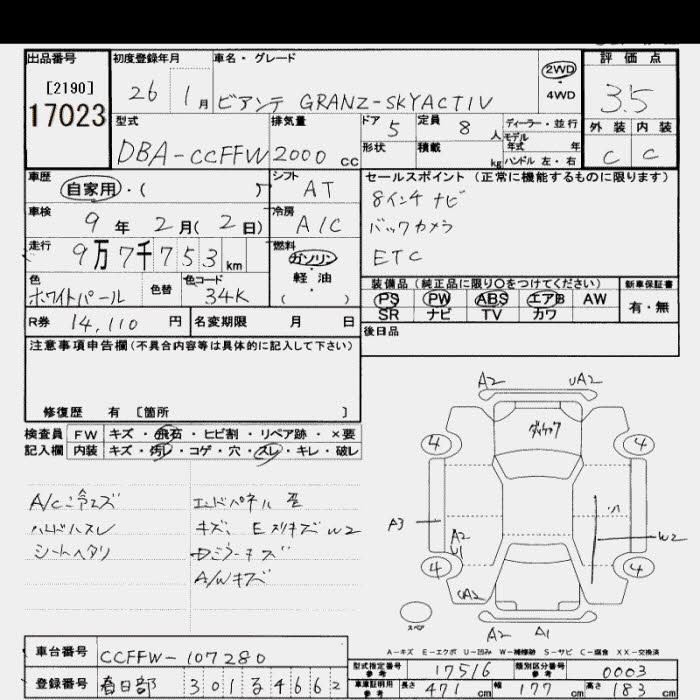 出品番号 初度登録年月 車名・グレード 2WD 評価点
[2190] 26 1月 ビアンテ GRANZ-SKYACTIV 4WD 3.5
17023
型式 排気量 ドア 5 定員 8人 ディーラー・並行 外装 内装
モデル
年式 年
DBA-CCFFW 2000cc 形状 積載 kg ハンドル 左・右 C C
車歴 シフト セールスポイント (正常に機能するものに限ります)
自家用・( ) AT 8インチ ナビ
車検 冷房 バックカメラ
9年 2月(2日) A/C ETC
走行 燃料
9万7千753km ガソリン
軽油
( )
色 色替 色コード 装備品 (純正品に限り○をつけてください) 新車保証書
ホワイトパール 34K PS PW ABS エアB AW 有・無
SR ナビ TV カワ
R券 14,110円 名変期限 月 日 後日品
注意事項申告欄(不具合内容等は具体的に記入して下さい)
修復歴 有 [箇所 ]
検査員 FW キズ・飛石・ヒビ割・リペア跡・×要
記入欄 内装 キズ・汚レ・コゲ・穴・スレ・キレ・破レ
A/C冷エズ エンドパネル
ハンドルスレ キズ、 W2
シートヘタリ キズ
A/Wキズ
A2 UA2
4 4
A3 A2 U1 W2
4 4
UA2
スペア A2 A1
A-キズ E-エクボ U-凹み W-補修跡 S-サビ C-腐食 XX-交換済
車台番号 CCFFW-107280
型式指定番号 参考 17516 類別区分番号 参考 0003
登録番号 春日部 301 る 4662
車庫証明用 参考 長さ 471cm 幅 177cm 高さ 183cm